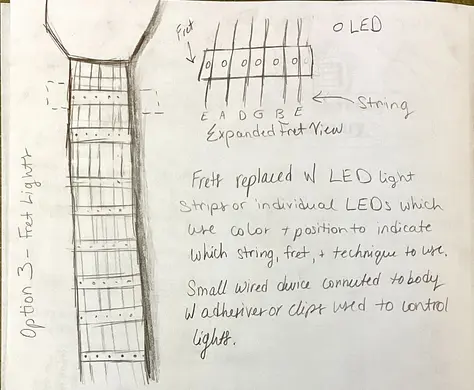 Fret
O LED
String
E A D G B E
Expanded Fret View
Option 3 - Fret Lights
Frets replaced w LED light
strips or individual LEDs which
use color + position to indicate
which string, fret, + technique to use.
Small wired device connected to body
w adhesives or clips used to control
lights.